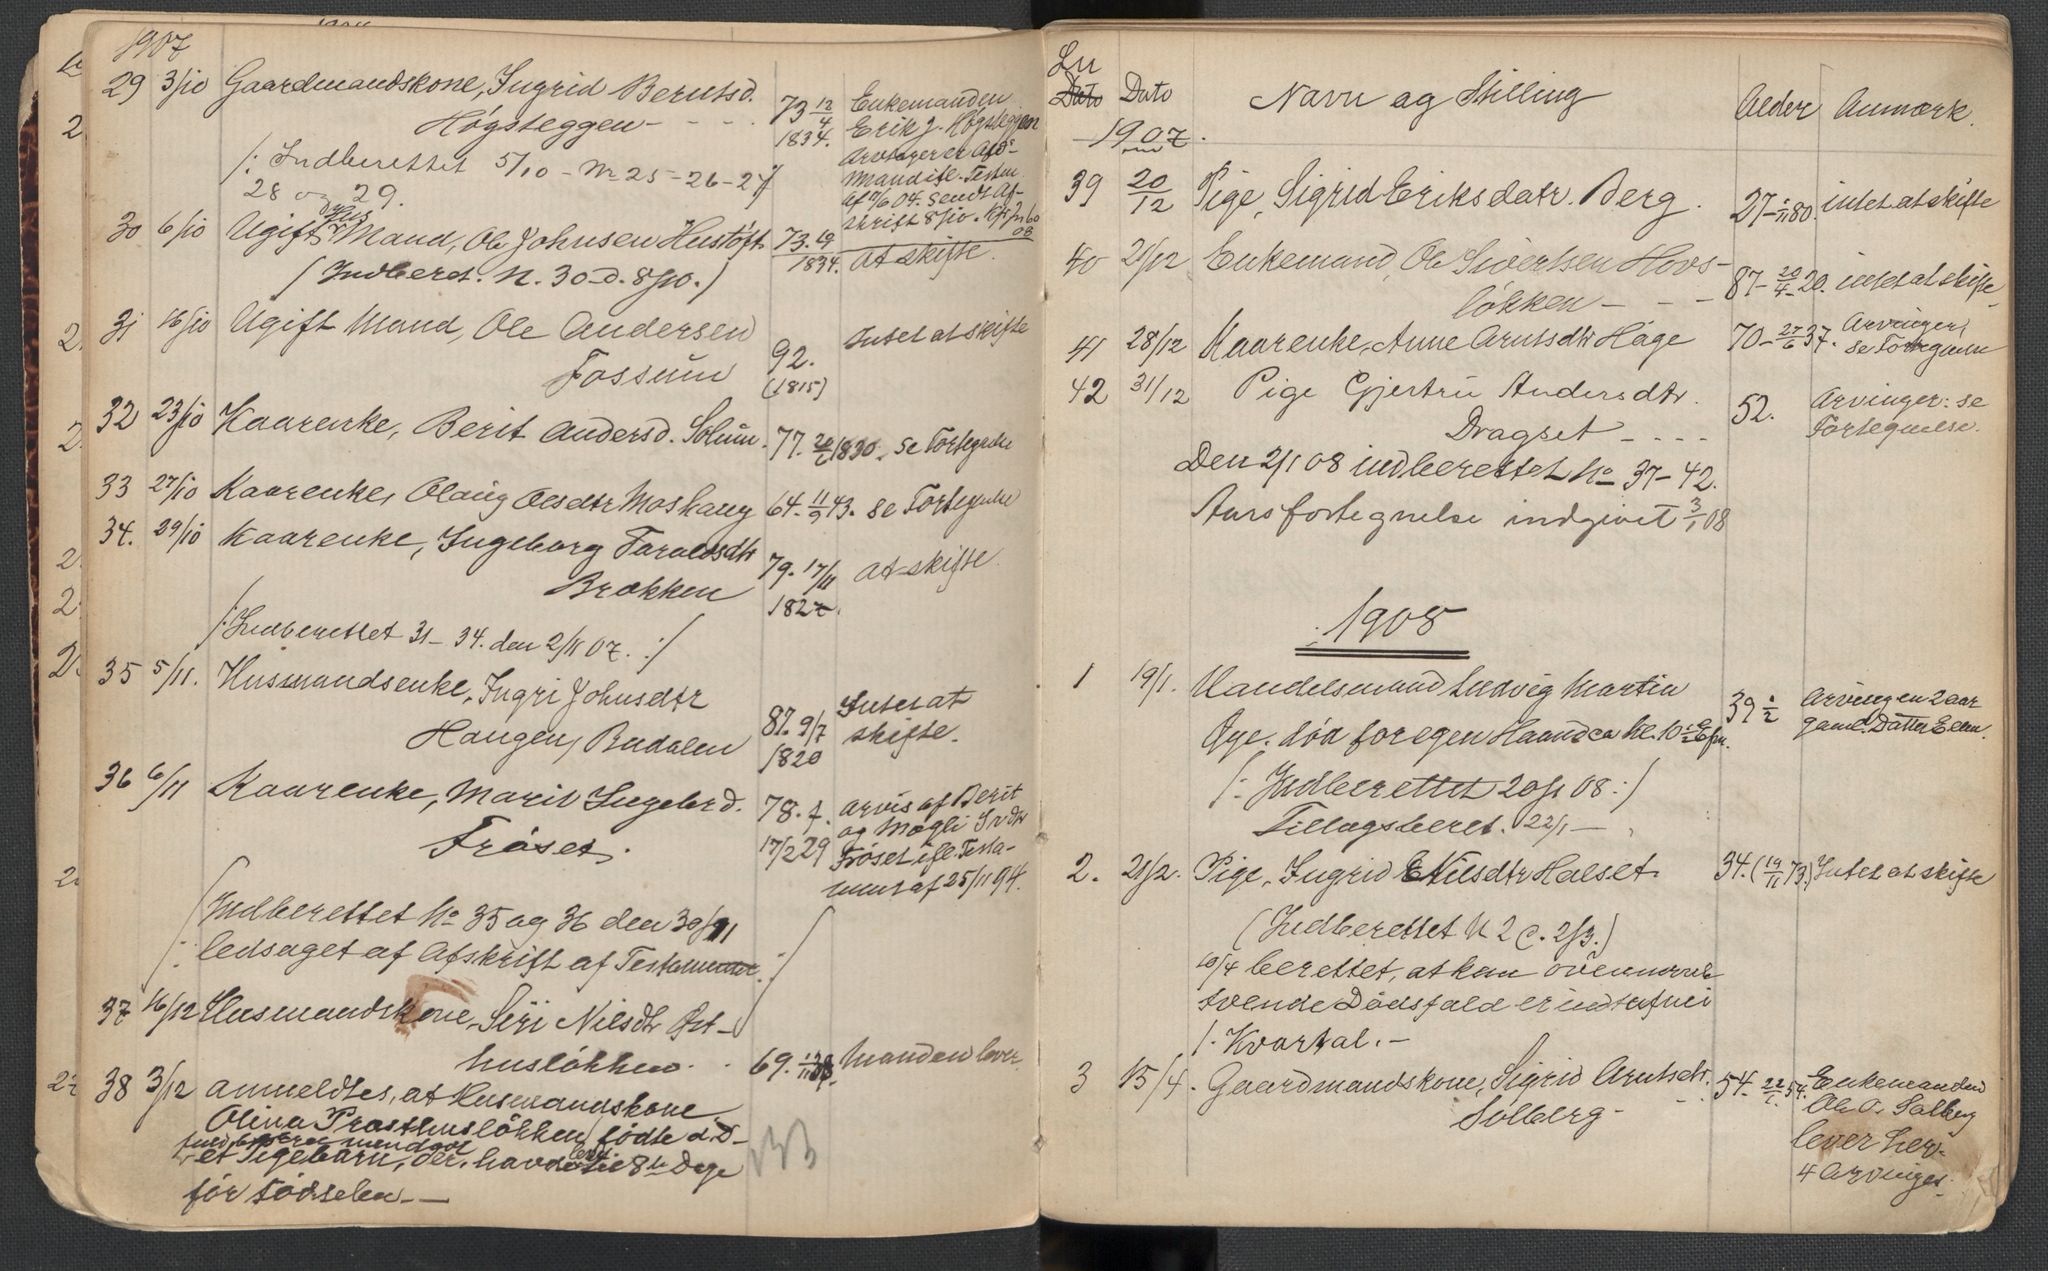 1907
29 3/10 Gaardmandskone, Ingrid Berntsd.
Høgsteggen - - - - 73 12/4 1834. Enkemanden
Erik J. Høgsteggen
/: Indberettet 5/10 - No 25-26-27
28 og 29.
Af 11/6 04. sendt Af-
skrift 8/10.
30 6/10 Ugift Mand, Ole Johnsen Hustøft 73. 19 1834. at skifte.
(Indberet. N. 30 d. 8/10.)
31 16/10 Ugift Mand, Ole Andersen
Fossum 92. (1815) Intet at skifte
32 23/10 Kaarenke, Berit Andersd. Solum. 77. 1830. se Fortegnelse
33 27/10 Kaarenke, Olaug Olsdtr Moshaug 64 - 11/9 43. se Fortegnelse
34. 29/10 Kaarenke, Ingeborg Taraldsdtr
Brækken 79. 17/11 1827. at skifte.
/: Indberettet 31-34. den 2/11 07. :/
35 5/11. Husmandsenke, Ingri Johnsdtr
Haugen, Budalen 87. 9/7 1820 Intet at
skifte.
36 6/11 Kaarenke, Marit Ingebr d.
Frøset. 78. 17/2 29 arvis af Berit
og Magli
Frøset ifl. Testa-
ment af 25/11 94.
/: Indberettet No 35 og 36 den 30/11
ledsaget af Afskrift af Testamenter :/
37 16/12 Husmandskone, Siri Nilsdtr Øst-
husløkken. 69. Manden lever.
38 3/12 anmeldtes, at Husmandskone
Olina Prosthusløkken fødte d. D.
et Pigebarn, der havde 8te Dage
før Fødselen. —
Ln
Dato Dato Navn og Stilling Alder Anmærk.
1907.
39 20/12 Pige, Sigrid Eriksdatr. Berg. 27 - 80. intet at skifte
40 21/12 Enkemand, Ole Sivertsen Hovs-
løkken - - - 87 - 20/4 - 20. intet at skifte
41 28/12 Kaarenke, Anne Arntsdtr Hage 70 - 27/6 37. Arvinger,
se Fortegnelse
42 31/12 Pige Gjertru Andersdtr.
Dragset - - - - 52. Arvinger: se
Fortegnelse.
Den 2/1 08 indberettet No 37-42.
Aarsfortegnelse indgivet 3/1 08
1908
1 19/1. Handelsmand Ludvig Martin
Øye. død for egen Haand ca kl. 10 1/2 Efm. 39 1/2 Arvingen 2 aar
gaml. Datter Ellen.
/: Indberettet 20/1 08 :/
Tillægsberet. 22/1 —
2. 21/2. Pige, Ingrid E Nilsdtr Halset. 34. (19/11 73.) Intet at skifte
(Indberettet N 2 d. 2/3.)
10/4 berettet, at kun ovennævnte
tvende Dødsfald er indtrufne i
1. Kvartal. —
3 15/4. Gaardmandskone, Sigrid Arntsdtr.
Solberg - 54 - 22/1 54. Enkemanden
Ole O. Solberg
lever her-
4 Arvinger.